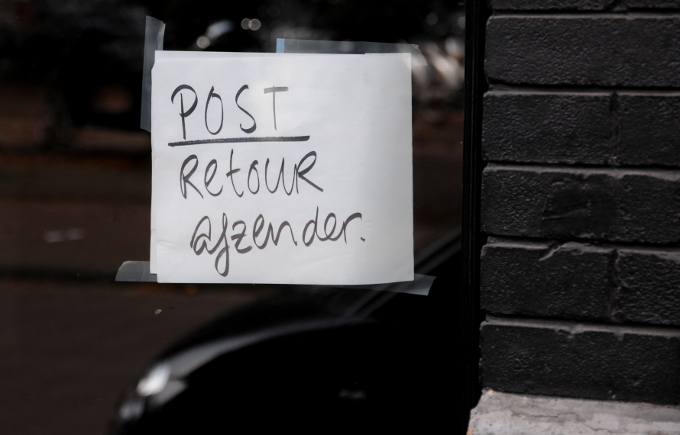 POST
Retour
afzender.